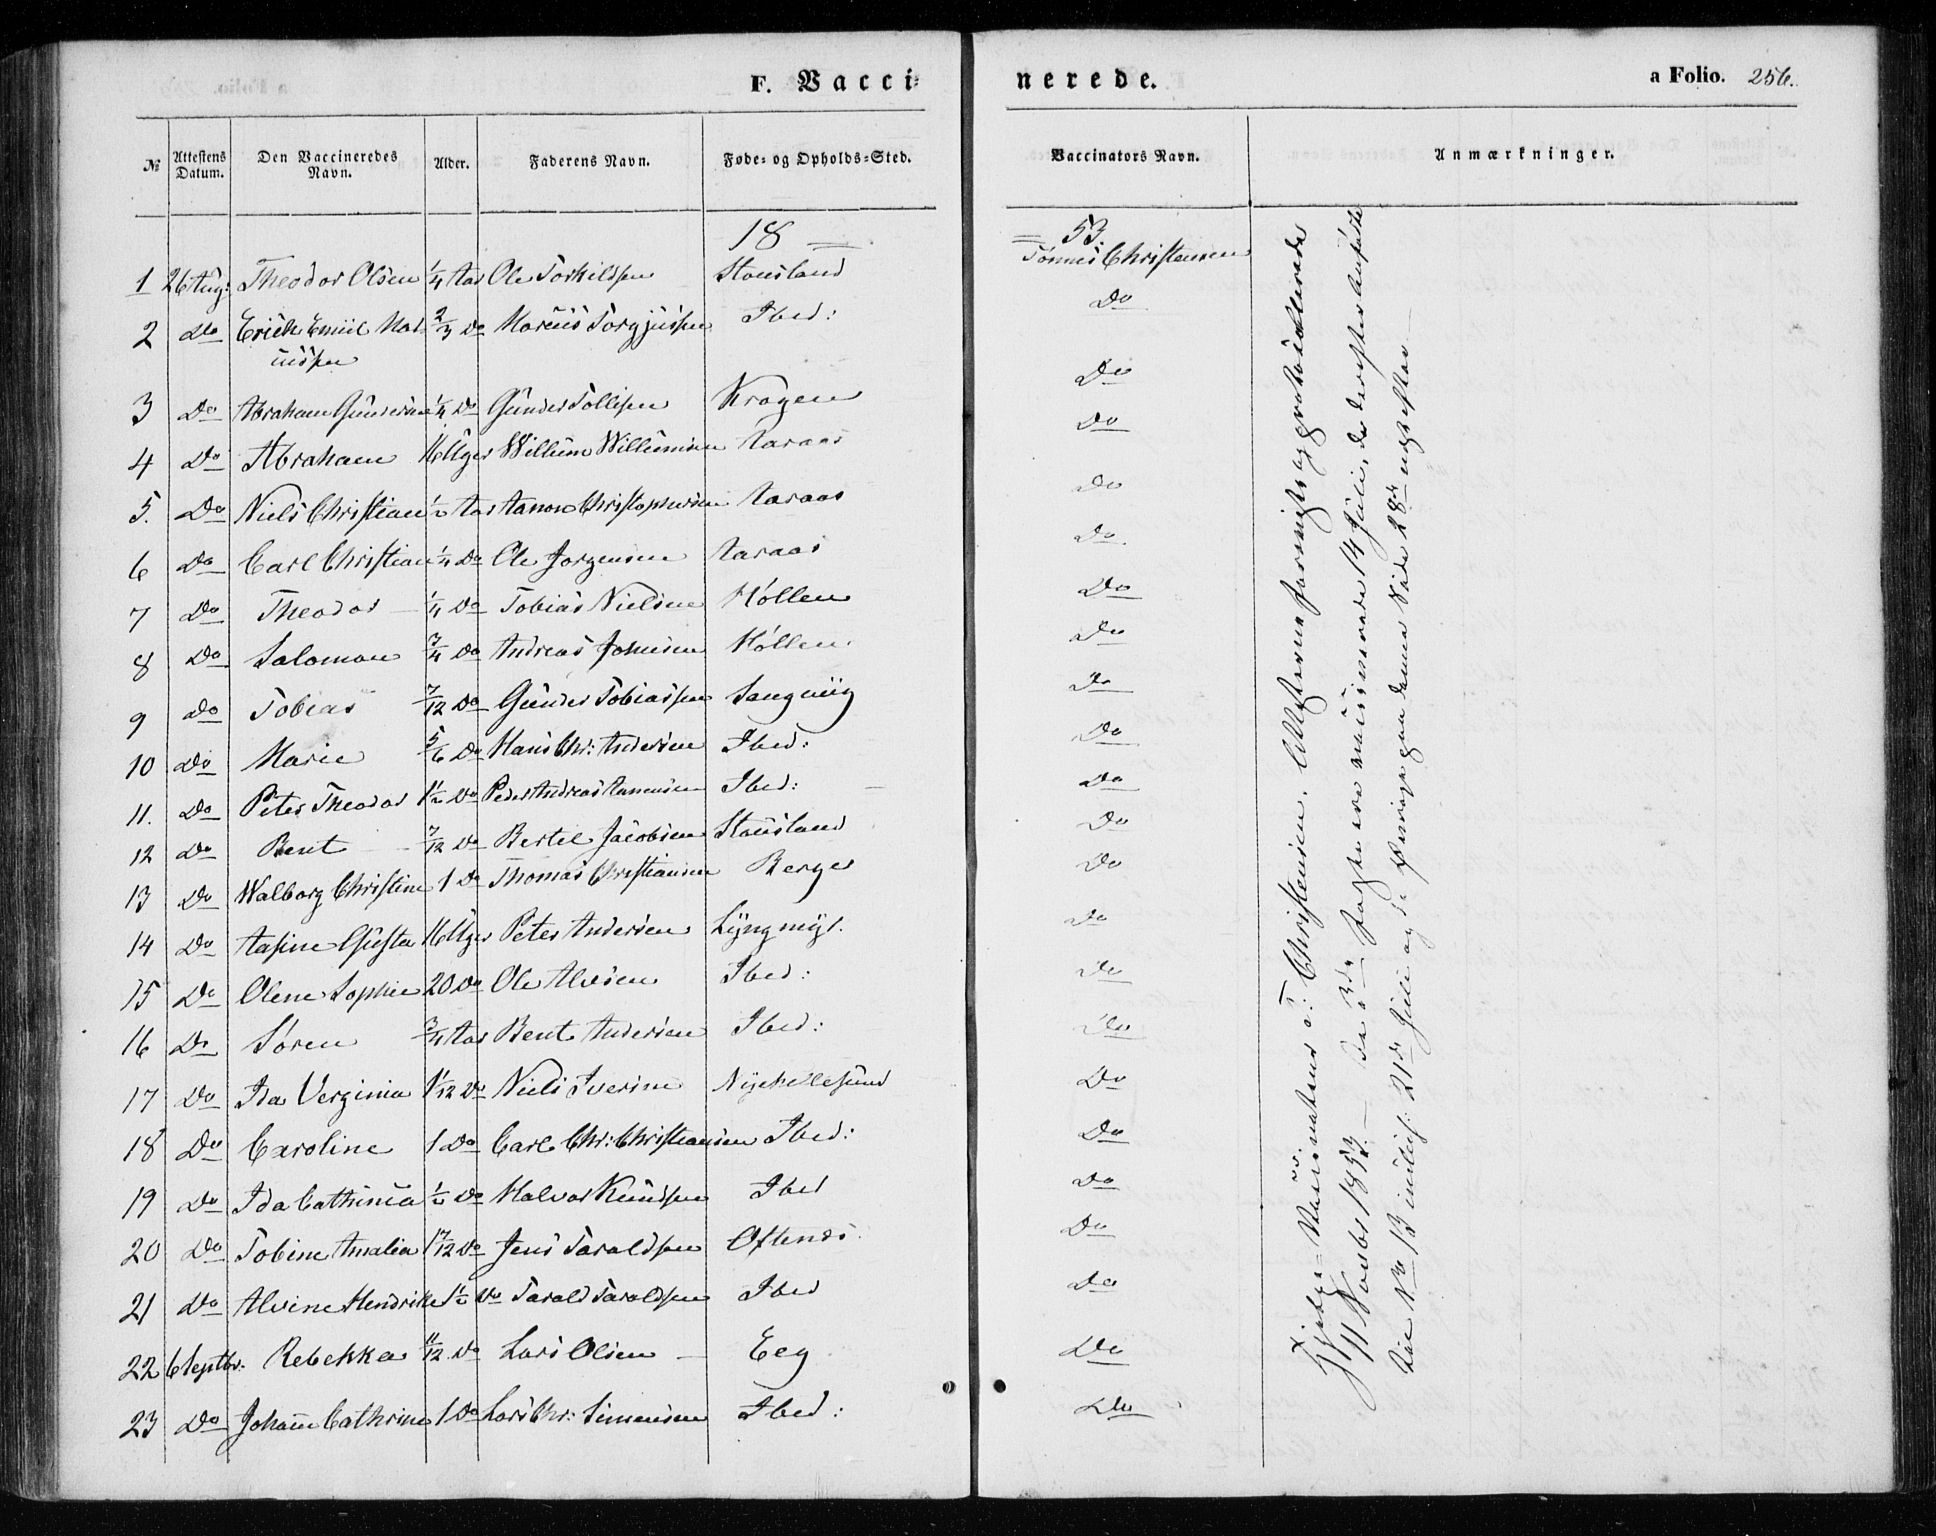 F. Vacci=
nerede.
a Folio. 256.
№ Attestens Datum. Den Vaccineredes Navn. Alder. Faderens Navn. Føde= og Opholds=Sted. Vaccinators Navn. Anmærkninger.
18 = = 53.
1 26 Aug: Theodor Olsen 1/4 Aar Ole Torkildsen Stausland Tønnes Christensen
2 Do Erich Emiil Mar= 2/3 Do Marcus Torgjussen Ibed: Do
cussen
3 Do Abraham Gundersen 1/4 Do Gunder Tollisen Kragen Do
4 Do Abraham 16 Uger Willum Willumsen Aaraas Do
5. Do Niels Christian 1/2 Aar Aanon Christophersen Aaraas Do
6 Do Carl Christian 1/4 Do Ole Jørgensen Aaraas Do
7 Do Theodor 1/4 Do Tobias Nielsen Høllen Do
8 Do Salomon 3/4 Do Andreas Johnsen Høllen Do
9 Do Tobias 7/12 Do Gunder Tobiassen Langviig Do
10 Do Marie 5/6 Do Hans Chr: Andersen Ibed: Do
11. Do Peter Theodor 1 1/2 Do Peder Andreas Aanensen Ibed: Do
12 Do Bent 7/12 Do Bertel Jacobsen Stausland Do
13 Do Walborg Christine 1 Do Thomas Christiansen Berge Do
14 Do Aasine 16 Uger Peter Andersen Lyngmyr. Do
15 Do Olene Sophie 20 Do Ole Alvesen Ibed: Do
16 Do Søren 3/4 Aar Bent Andersen Ibed: Do
17 Do Ida Verginia 1 1/12 Do Niels Iversen Nyehellesund Do
18 Do Caroline 1 Do Carl Chr: Christiansen Ibed: Do
19 Do Ida Cathinca 1/2 Do Halvor Knudsen Ibed Do
20 Do Tobine Amalia 1 7/12 Do Jens Taraldsen Oftenæs Do
21 Do Alvine Hendrikke 1 1/2 Do Tarald Taraldsen Ibed Do
22 6 Septbr: Rebekka 11/12 Do Lars Olsen Eeg Do
23 Do Johann Cathrine 1 Do Lars Chr: Simensen Ibed: Do
Hjelpe-Vaccinateur T: Christensen, Attesterne forevist og protocollerede
11 Novbr 1853. — De 3de Første ere vaccinerede 14 Juli, de derefter anførte
til No 13 inclus: 21de Juli og de Øvrige paa denne Side 28de